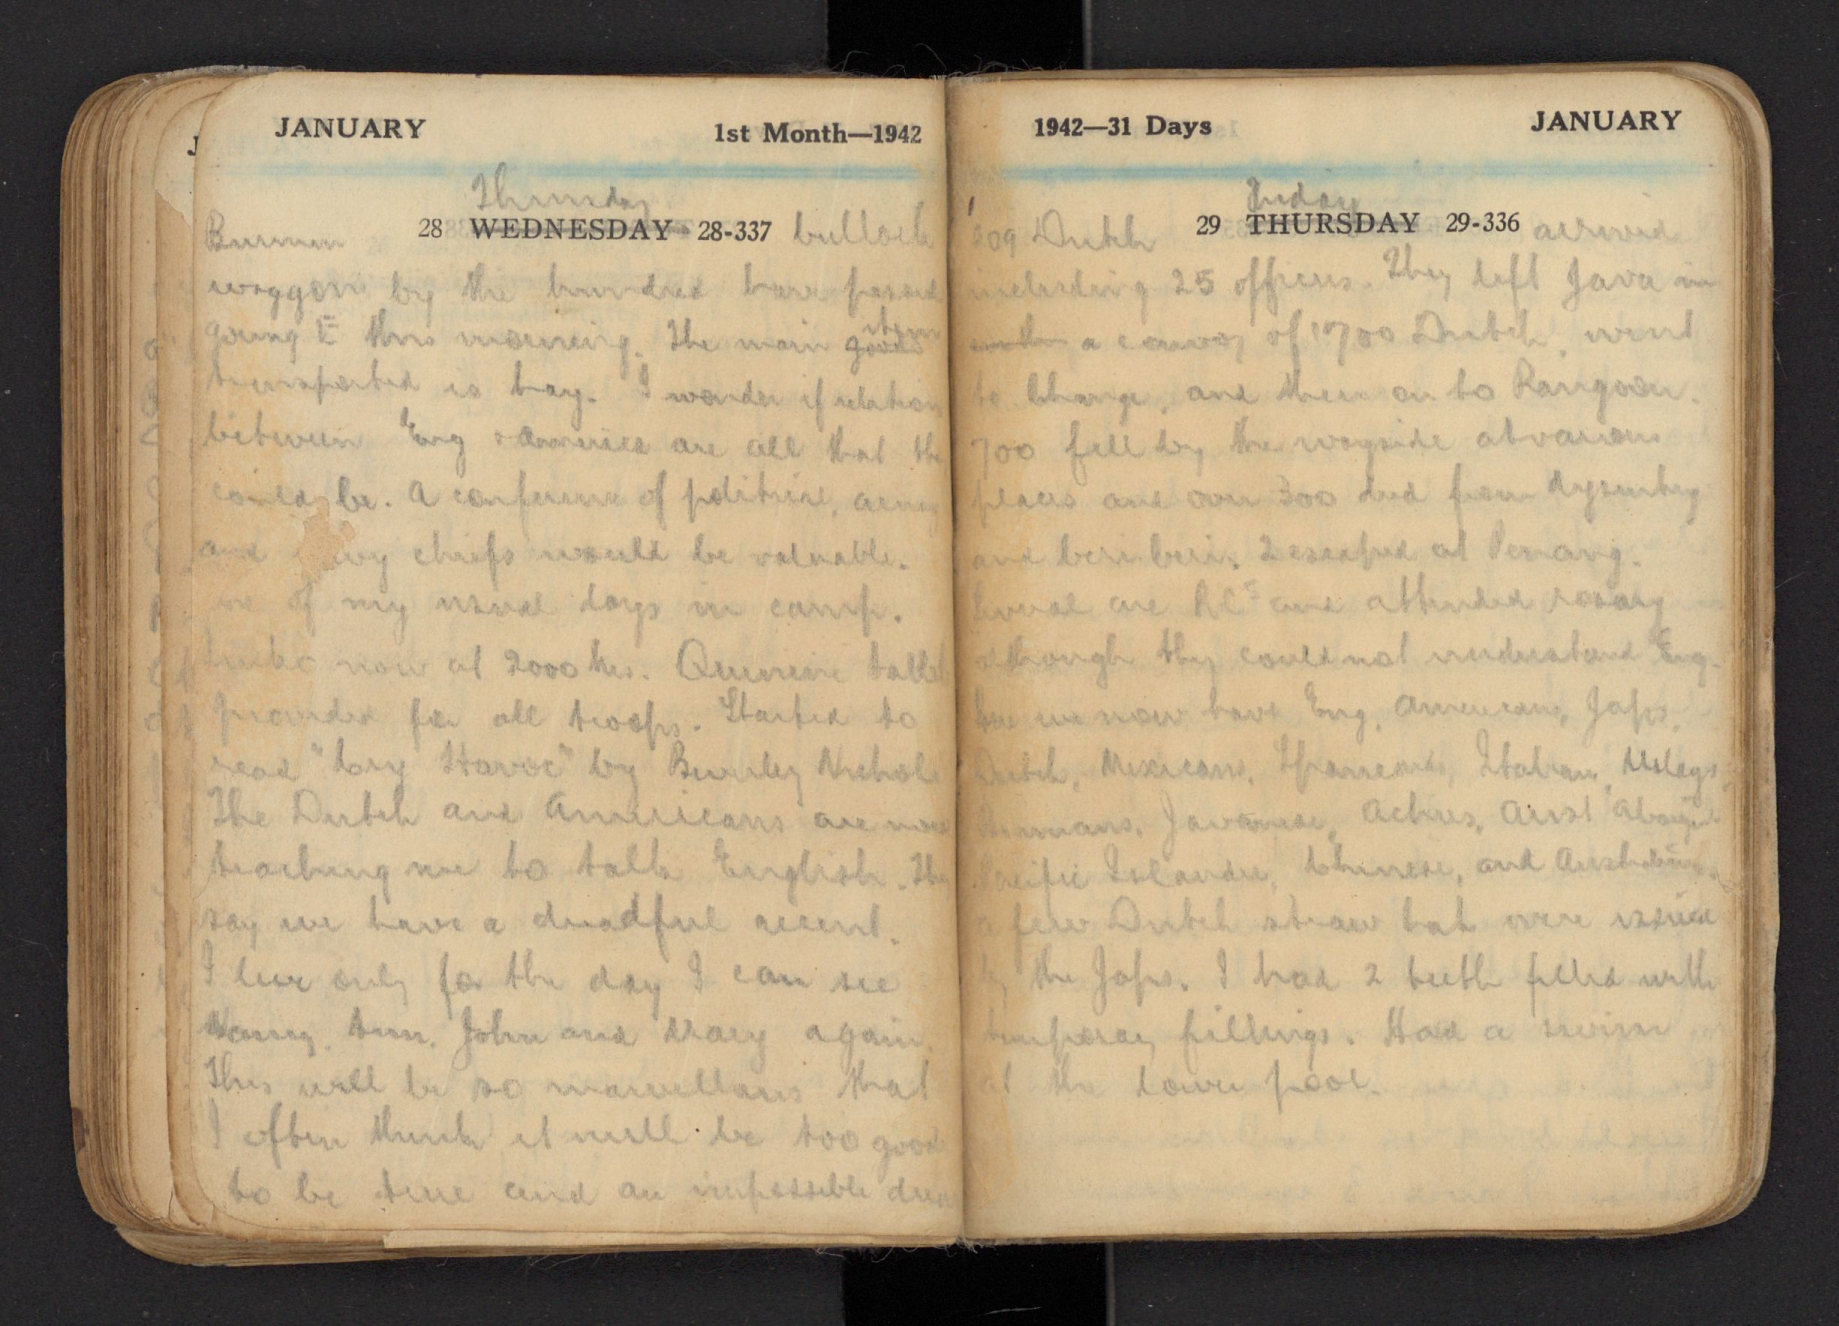 JANUARY 1st Month—1942
Thursday
28 WEDNESDAY 28-337
Burman bullock
waggons by the hundred have passed
going E this morning. The main goods item
transported is hay. I wonder if relation
between Eng & America are all that the
could be. A conference of political, army
and chiefs would be valuable.
of my usual days in camp.
now at 2000 hrs. Quinine tablet
provided for all troops. Started to
read "Cry Havoc" by Beverley Nichols
The Dutch and Americans are now
teaching me to talk English. The
say we have a dreadful accent.
I live only for the day I can see
Nancy, John and again.
This will be so marvellous that
I often think it will be too good
to be true and an impossible dream
1942—31 Days JANUARY
Friday
29 THURSDAY 29-336
209 Dutch arrived
including 25 officers. They left Java in
a convoy of 1700 Dutch, went
to Changi, and then on to Rangoon.
700 fell by the wayside at various
places and over 300 died from dysentry
and beri beri. 2 escaped at Penang.
Several are RCs and attended rosary
although they could not understand Eng.
we now have Eng, Americans, Japs,
Dutch, Mexicans, Spaniards, Italian, Malays
Burmans, Javanese, Aust Aborig
Pacific Islander, Chinese, and Australians.
a few Dutch straw hat were issued
by the Japs. I had 2 teeth filled with
temporary fillings. Had a swim
at the lower pool.